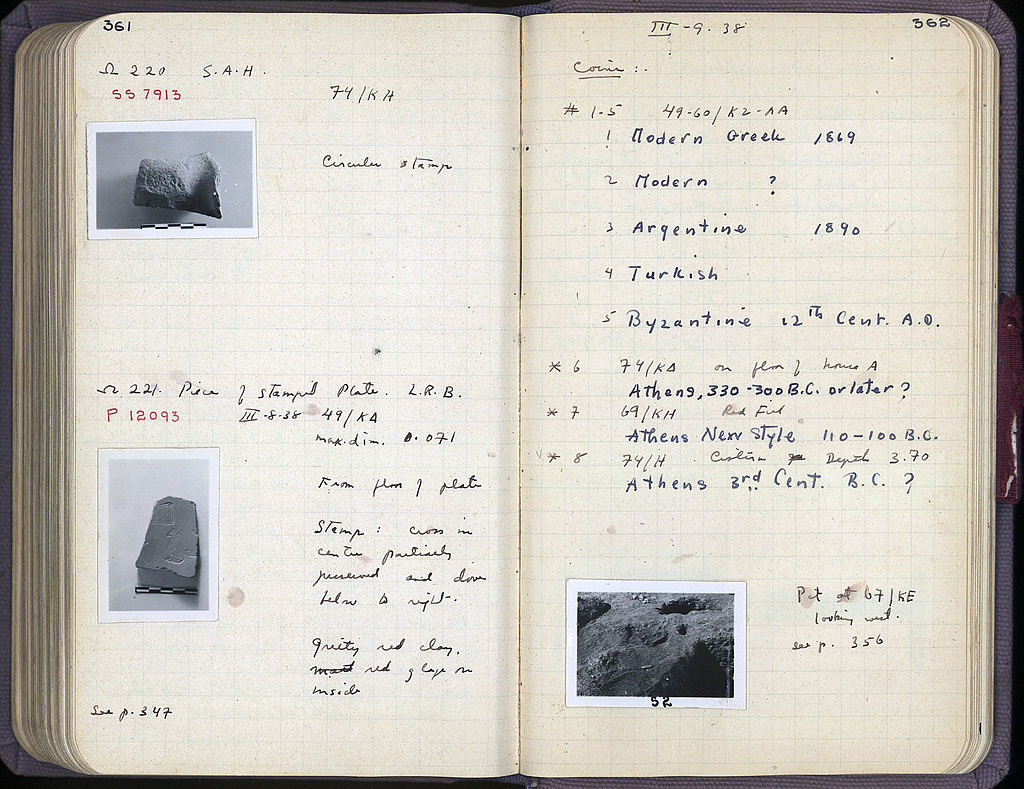 361
Ω 220 S.A.H.
SS 7913
74/KH
Circular stamp
Ω 221. Piece of stamped Plate. L.R.B.
P 12093 III-8-38 49/KΔ
max. dim. 0.071
From floor of plate
Stamp: cross in
centre partially
preserved and dove
below to right.
Gritty red clay,
red glaze on
inside
See p. 347
362
III-9.38
Coins:.
# 1-5 49-60/KZ-ΛΑ
1 Modern Greek 1869
2 Modern ?
3 Argentine 1890
4 Turkish
5 Byzantine 12th Cent. A.D.
* 6 74/KΔ on floor of house A
Athens, 330-300 B.C. or later?
* 7 69/KH Red Fill
Athens New Style 110-100 B.C.
* 8 74/H Cistern Depth 3.70
Athens 3rd Cent. B.C. ?
Pit at 67/KE
looking west.
see p. 356
52